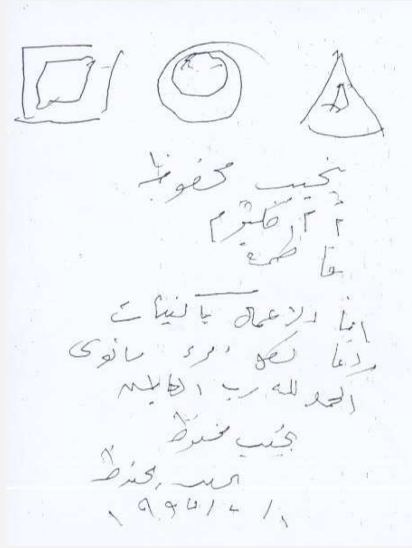 نجيب محفوظ
أم كلثوم
فاطمة
إنما الاعمال بالنيات
وانما لكل امرء مانوى
الحمد لله رب العالمين
نجيب محفوظ
نجيب محفوظ